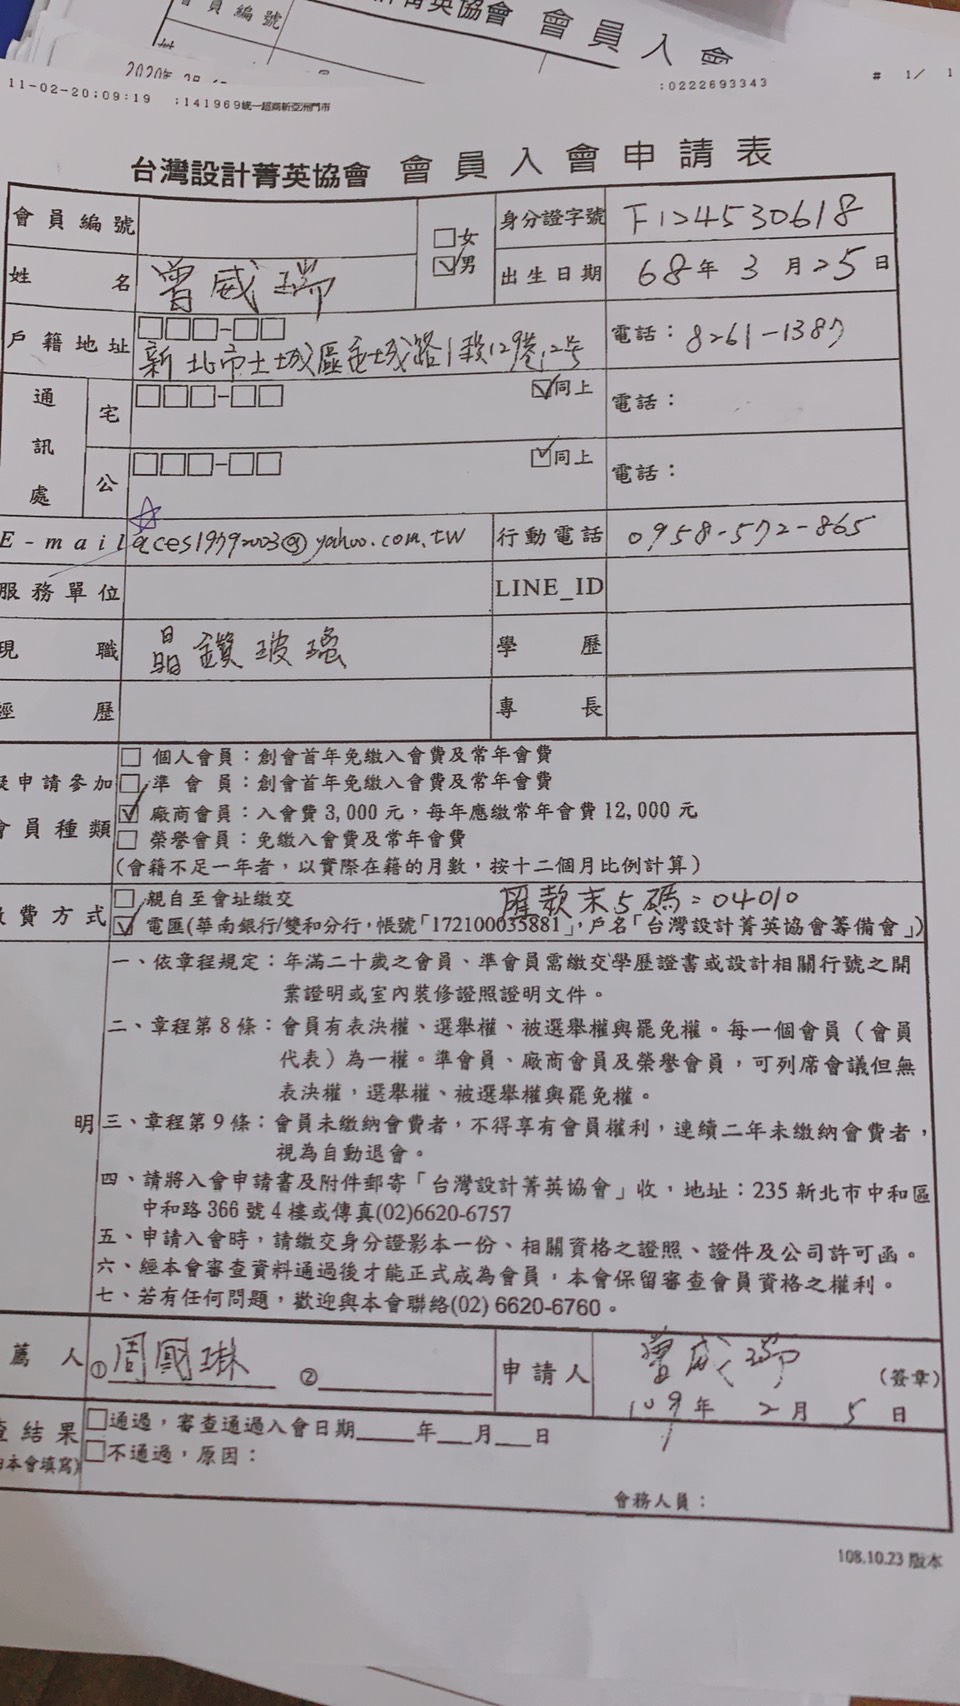 會員編號
菁英協會 會員入會
11-02-20;09:19 ;141969統一超商新亞洲門市 ;0222693343 # 1/ 1
台灣設計菁英協會 會員入會申請表
會員編號
□女
☑男
身分證字號 F124530618
姓名 曾威瑞
出生日期 68年3月25日
戶籍地址 □□□-□□
新北市土城區金城路1段129巷12號
電話：8261-1387
通訊處
宅 □□□-□□ ☑同上 電話：
公 □□□-□□ ☑同上 電話：
E-mail aces19792003@yahoo.com.tw 行動電話 0958-572-865
服務單位 LINE_ID
現職 晶鑽玻璃 學歷
經歷 專長
申請參加
會員種類
□ 個人會員：創會首年免繳入會費及常年會費
□ 準會員：創會首年免繳入會費及常年會費
☑ 廠商會員：入會費3,000元，每年應繳常年會費12,000元
□ 榮譽會員：免繳入會費及常年會費
（會籍不足一年者，以實際在籍的月數，按十二個月比例計算）
繳費方式
□ 親自至會址繳交 匯款末5碼=04010
☑ 電匯(華南銀行/雙和分行，帳號「172100035881」，戶名「台灣設計菁英協會籌備會」)
一、依章程規定：年滿二十歲之會員、準會員需繳交學歷證書或設計相關行號之開
業證明或室內裝修證照證明文件。
二、章程第8條：會員有表決權、選舉權、被選舉權與罷免權。每一個會員（會員
代表）為一權。準會員、廠商會員及榮譽會員，可列席會議但無
表決權，選舉權、被選舉權與罷免權。
明
三、章程第9條：會員未繳納會費者，不得享有會員權利，連續二年未繳納會費者，
視為自動退會。
四、請將入會申請書及附件郵寄「台灣設計菁英協會」收，地址：235新北市中和區
中和路366號4樓或傳真(02)6620-6757
五、申請入會時，請繳交身分證影本一份、相關資格之證照、證件及公司許可函。
六、經本會審查資料通過後才能正式成為會員，本會保留審查會員資格之權利。
七、若有任何問題，歡迎與本會聯絡(02) 6620-6760。
薦人 ①周國琳 ② 申請人 曾威瑞 （簽章）
109年2月5日
查結果
□通過，審查通過入會日期____年___月___日
□不通過，原因：
本會填寫)
會務人員：
108.10.23 版本